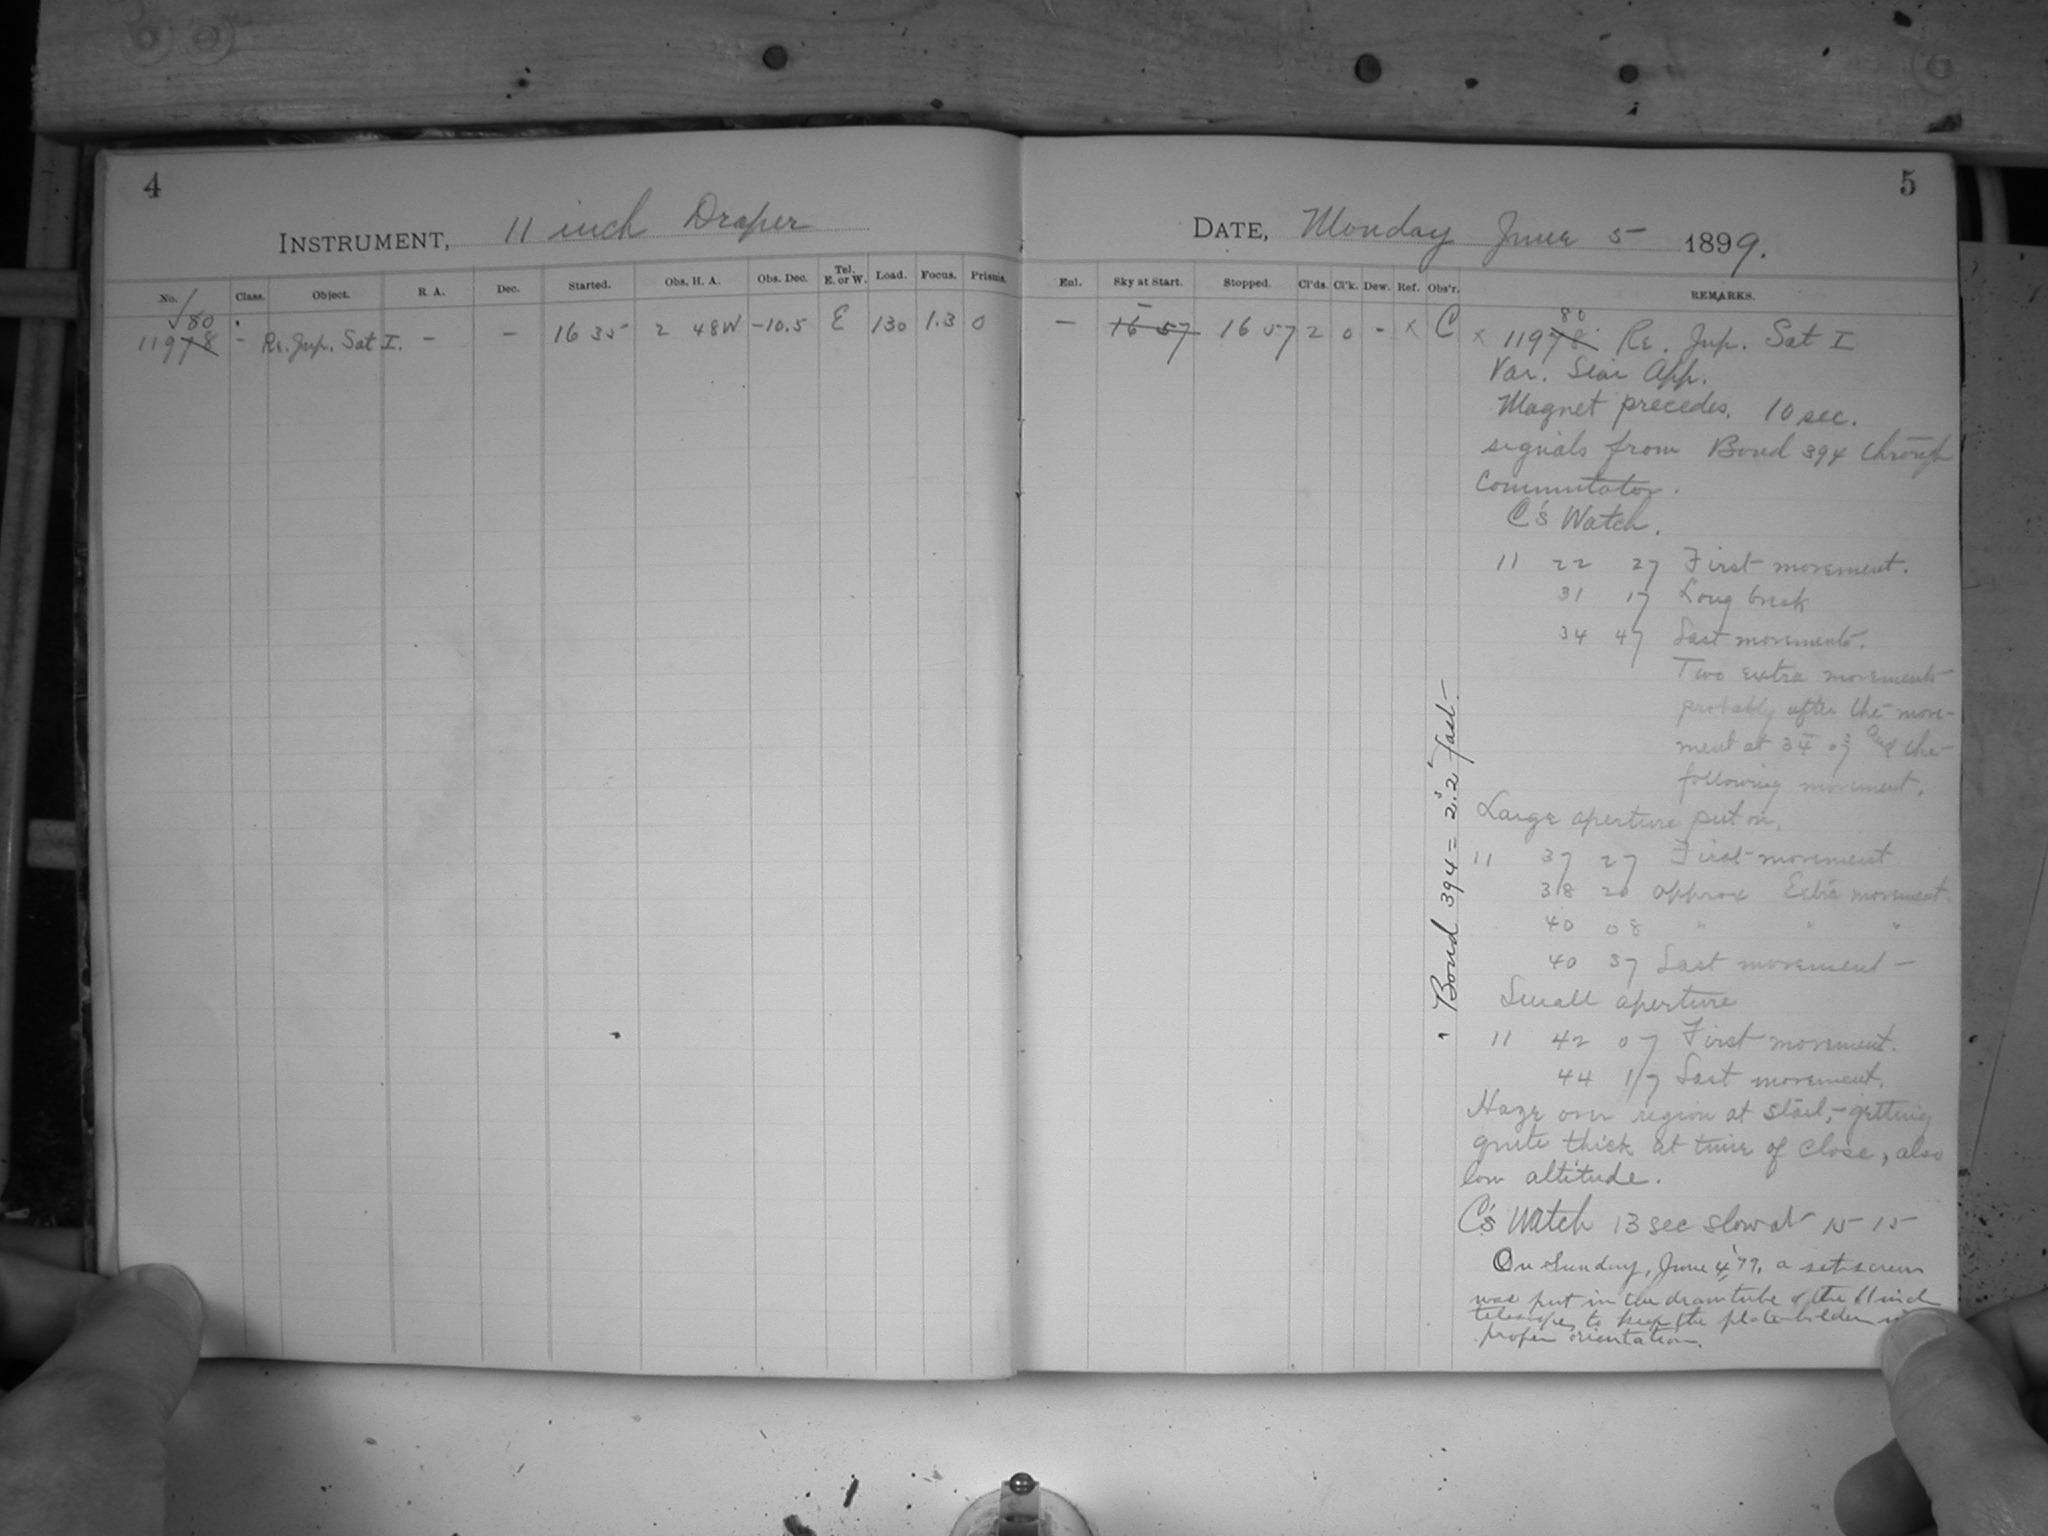 4
INSTRUMENT, 11 inch Draper
No. Class. Object. R. A. Dec. Started. Obs. H. A. Obs. Dec. Tel. E. or W. Load. Focus. Prisms.
80
11978 - Re. Jup. Sat I. - - 16 35 2 48W -10.5 E 130 1.3 0
5
DATE, Monday June 5 1899.
Enl. Sky at Start. Stopped. Cl'ds. Cl'k. Dew. Ref. Obs'r. REMARKS.
- 16 57 16 57 2 0 - x C
80
x 11978 Re. Jup. Sat I
Var. Star App.
Magnet precedes. 10 sec.
signals from Bond 394 through
Commutator.
C's Watch.
11 22 27 First movement.
31 17 Long break
34 47 Last movement.
Two extra movements
probably after the move-
ment at 34m 07s and the
following movement.
Large aperture put on.
11 37 27 First movement
38 20 approx Extra movement.
40 08 " " "
40 37 Last movement -
Small aperture
11 42 07 First movement.
44 17 Last movement.
Haze over region at start, - getting
quite thick at time of close, also
low altitude.
C's Watch 13 sec slow at 15 15
On Sunday, June 4, a set-screw
was put in the draw tube of the 11 inch
telescope, to keep the plateholder
proper orientation.
Bond 394 = 2s.2 fast